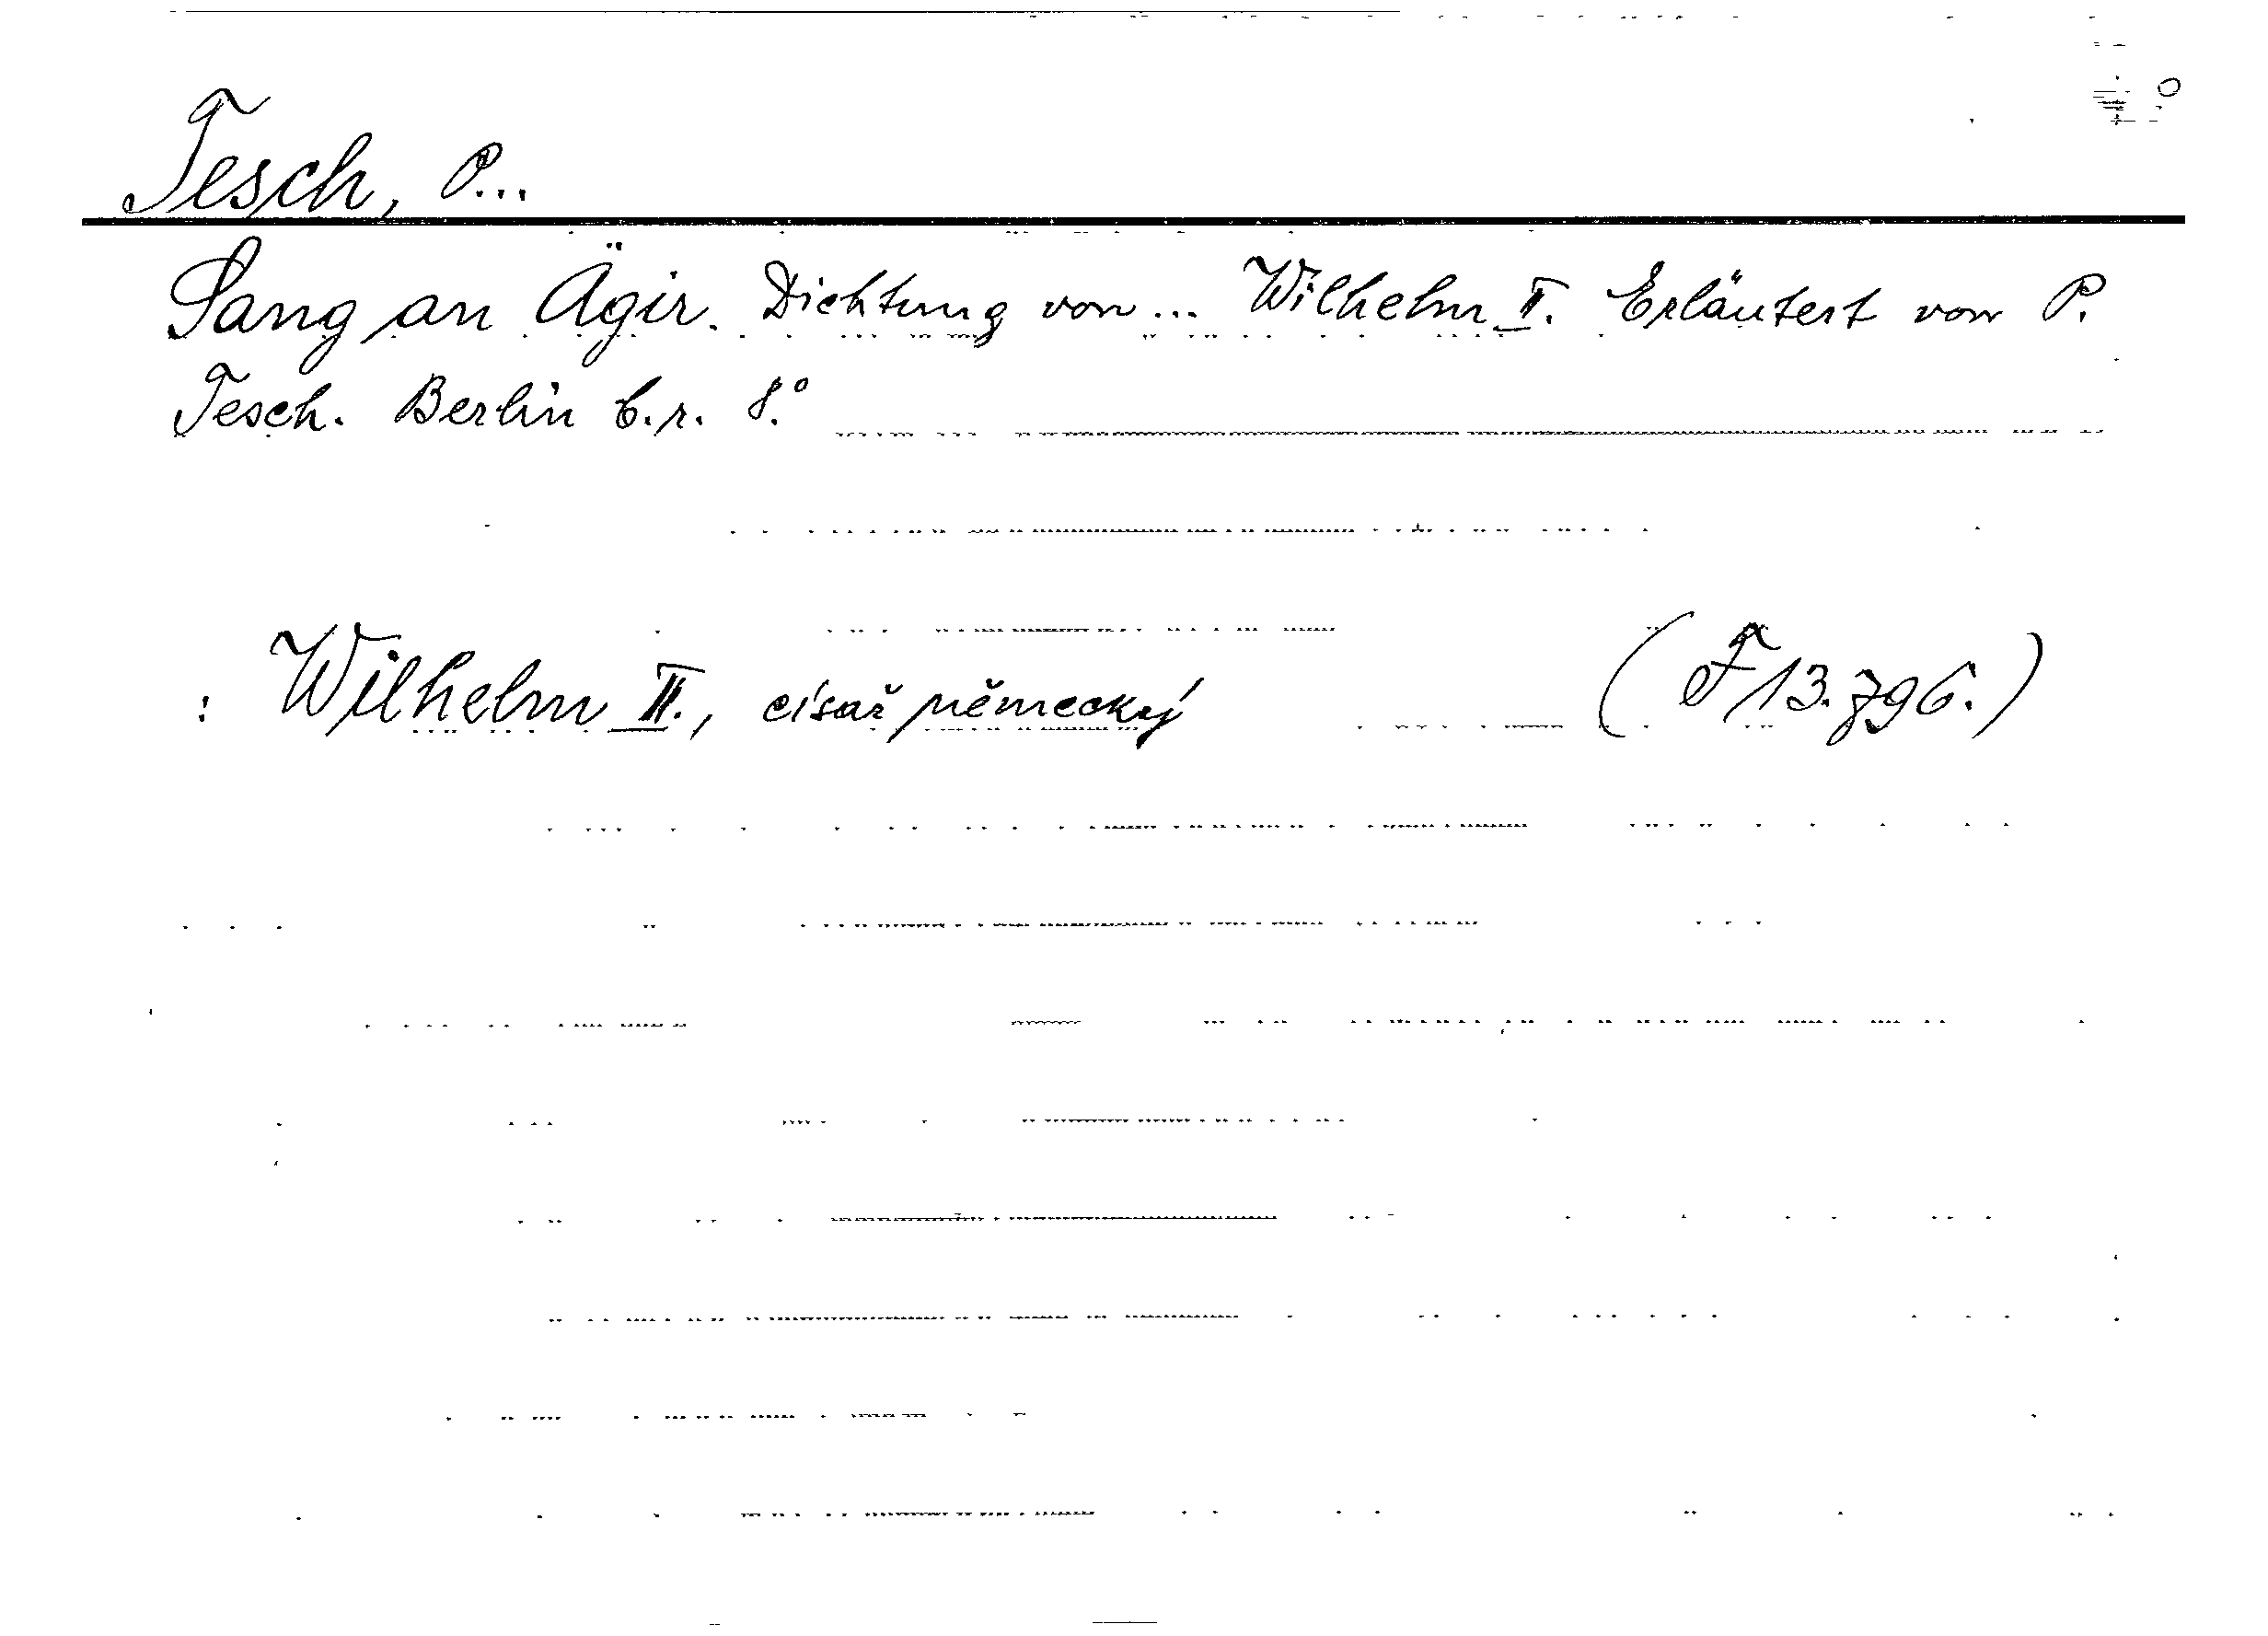 Tesch, P...
Sang an Ägir. Dichtung von ... Wilhelm II. Erläutert von P.
Tesch. Berlin b.r. 8.°
: Wilhelm II., císař německý (F 13.796.)